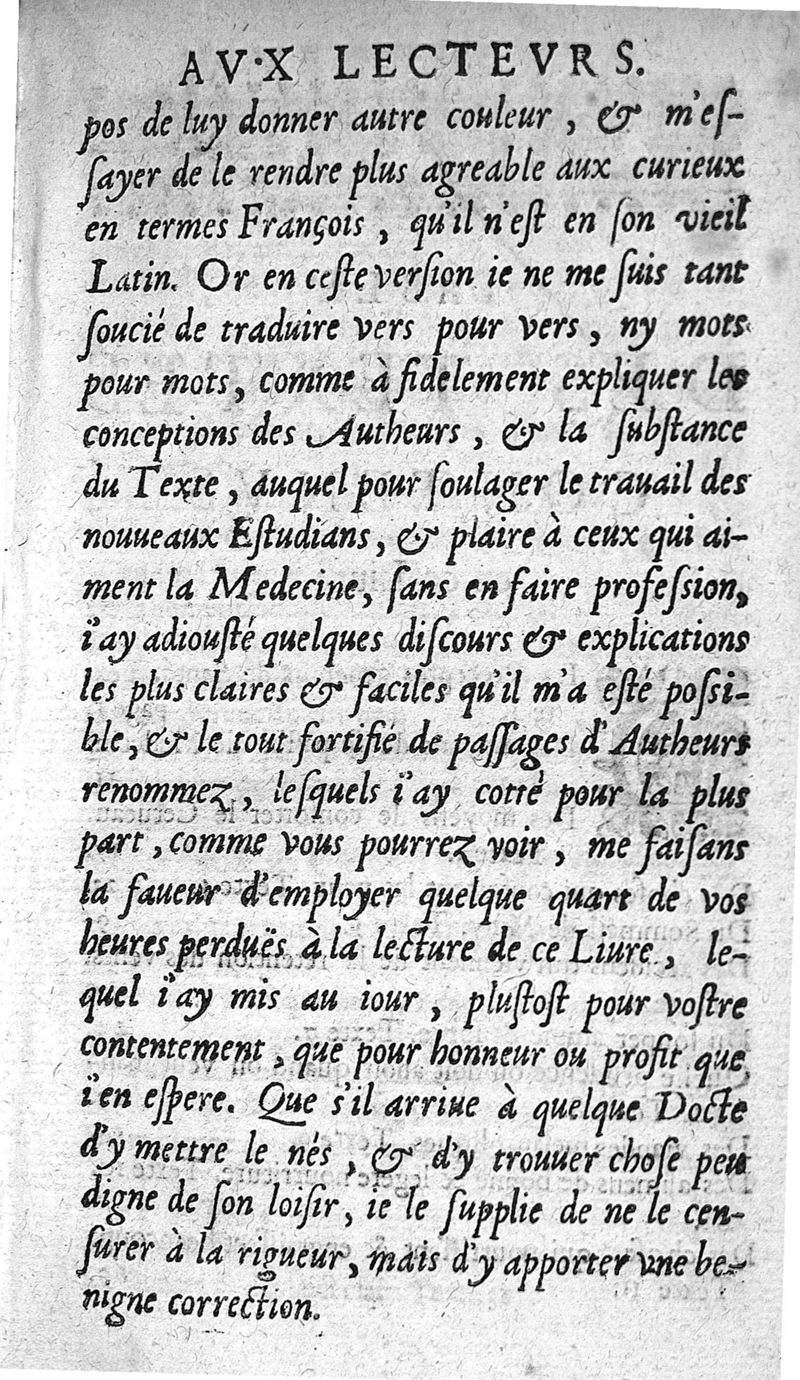 AVX LECTEVRS.
pos de luy donner autre couleur, & m'eſ-
ſayer de le rendre plus agreable aux curieux
en termes François, qu'il n'eſt en ſon vieil
Latin. Or en ceſte verſion ie ne me ſuis tant
ſoucié de traduire vers pour vers, ny mots
pour mots, comme à fidelement expliquer les
conceptions des Autheurs, & la ſubſtance
du Texte, auquel pour ſoulager le trauail des
nouueaux Eſtudians, & plaire à ceux qui ai-
ment la Medecine, ſans en faire profeſsion,
i'ay adiouſté quelques diſcours & explications
les plus claires & faciles qu'il m'a eſté poſsi-
ble, & le tout fortifié de paſſages d'Autheurs
renommez, leſquels i'ay cotté pour la plus
part, comme vous pourrez voir, me faiſans
la faueur d'employer quelque quart de vos
heures perduës à la lecture de ce Liure, le-
quel i'ay mis au iour, pluſtoſt pour voſtre
contentement, que pour honneur ou profit que
i'en eſpere. Que s'il arriue à quelque Docte
d'y mettre le nés, & d'y trouuer choſe peu
digne de ſon loiſir, ie le ſupplie de ne le cen-
ſurer à la rigueur, mais d'y apporter vne be-
nigne correction.